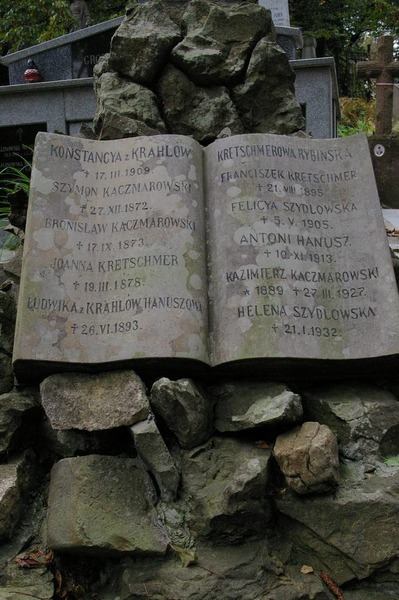 KONSTANCYA z KRAHLÓW
✝ 17.III.1909.
SZYMON KACZMAROWSKI
✝ 27.XII.1872.
BRONISŁAW KACZMAROWSKI
✝ 17.IX.1873.
JOANNA KRETSCHMER
✝ 19.III.1878.
LUDWIKA z KRAHLÓW HANUSZOWA
✝ 26.VI.1893.
KRETSCHMEROWA RYBIŃSKA
FRANCISZEK KRETSCHMER
✝ 21.VIII.1895.
FELICYA SZYDŁOWSKA
✝ 5.V.1905.
ANTONI HANUSZ
✝ 10.XI.1913.
KAZIMIERZ KACZMAROWSKI
* 1889 ✝ 27.III.1927.
HELENA SZYDŁOWSKA
✝ 21.I.1932.